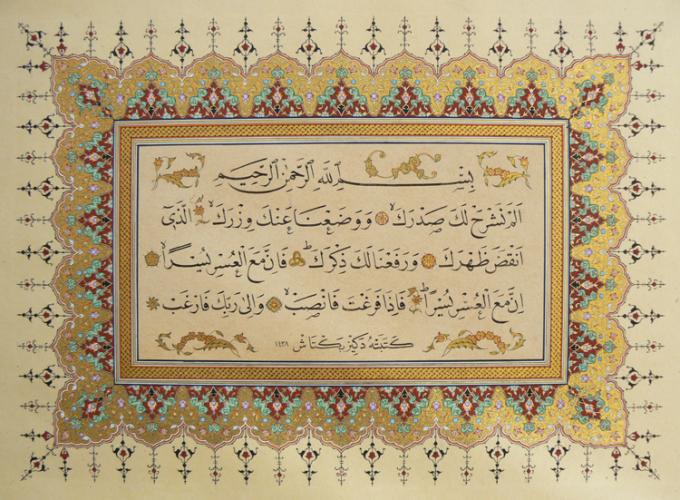 بِسْمِ اللهِ الرَّحْمٰنِ الرَّحِيمِ
اَلَمْ نَشْرَحْ لَكَ صَدْرَكَ وَوَضَعْنَا عَنْكَ وِزْرَكَ الَّذِى
اَنْقَضَ ظَهْرَكَ وَرَفَعْنَا لَكَ ذِكْرَكَ فَاِنَّ مَعَ الْعُسْرِ يُسْرًا
اِنَّ مَعَ الْعُسْرِ يُسْرًا فَاِذَا فَرَغْتَ فَانْصَبْ وَاِلٰى رَبِّكَ فَارْغَبْ
كتبه دكيز بكتاش ١٤٣٨